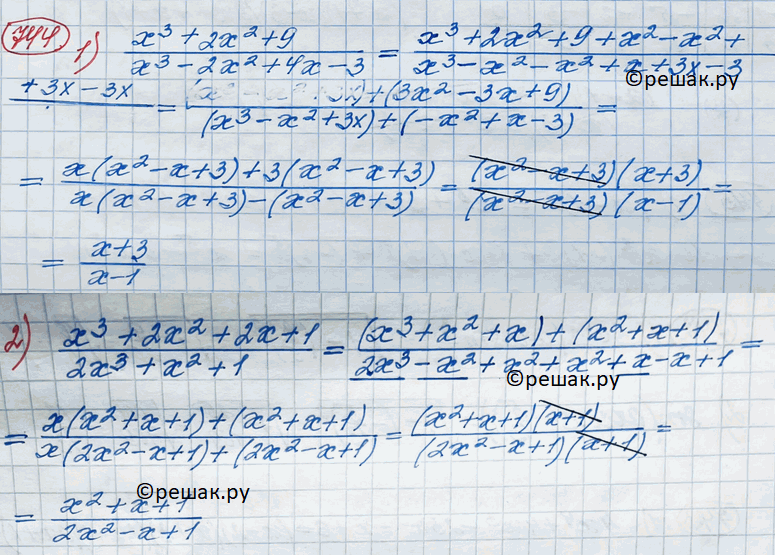 744
1) (x³ + 2x² + 9)/(x³ - 2x² + 4x - 3) = (x³ + 2x² + 9 + x² - x² +)/(x³ - x² - x² + x + 3x - 3)
©решак.ру
+ 3x - 3x = ( + (3x² - 3x + 9))/((x³ - x² + 3x) + (-x² + x - 3)) =
= (x(x² - x + 3) + 3(x² - x + 3))/(x(x² - x + 3) - (x² - x + 3)) = ((x² - x + 3)(x + 3))/((x² - x + 3)(x - 1)) =
= (x + 3)/(x - 1)
©решак.ру
2) (x³ + 2x² + 2x + 1)/(2x³ + x² + 1) = ((x³ + x² + x) + (x² + x + 1))/(2x³ - x² + x² + x² + x - x + 1) =
©решак.ру
= (x(x² + x + 1) + (x² + x + 1))/(x(2x² - x + 1) + (2x² - x + 1)) = ((x² + x + 1)(x + 1))/((2x² - x + 1)(x + 1)) =
©решак.ру
= (x² + x + 1)/(2x² - x + 1)